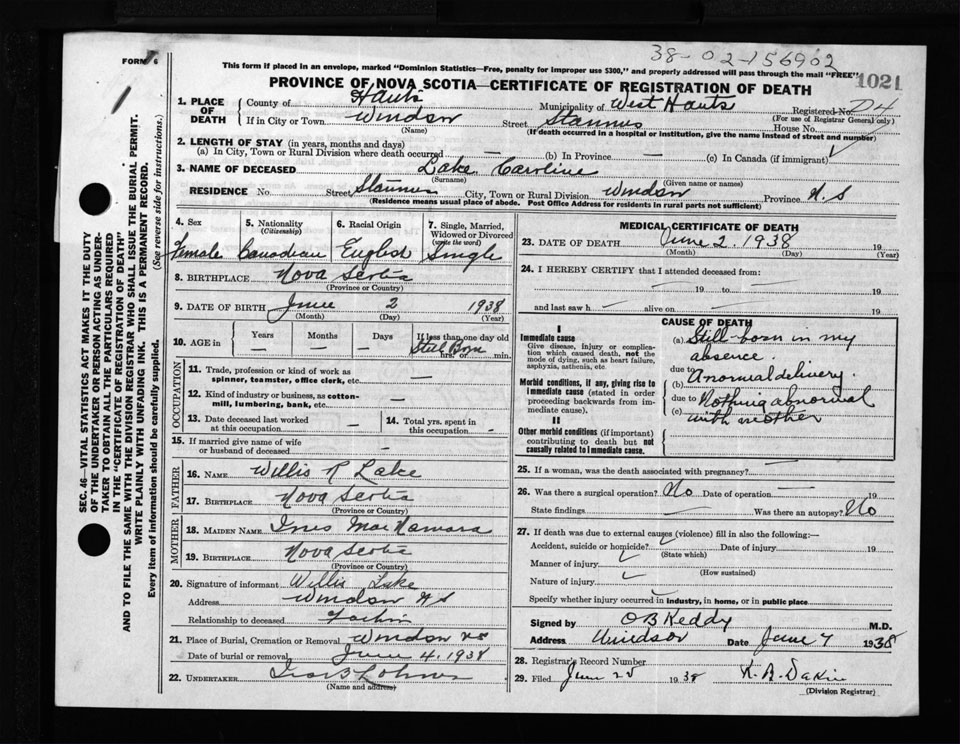 38-02-156902
FORM 6
This form if placed in an envelope, marked "Dominion Statistics—Free, penalty for improper use $300," and properly addressed will pass through the mail "FREE"
1021
PROVINCE OF NOVA SCOTIA—CERTIFICATE OF REGISTRATION OF DEATH
1. PLACE OF DEATH
County of Hants Municipality of West Hants Registered No.
(For use of Registrar General only)
If in City or Town Windsor Street Stannus House No.
(Name) (If death occurred in a hospital or institution, give the name instead of street and number)
2. LENGTH OF STAY (in years, months and days)
(a) In City, Town or Rural Division where death occurred — (b) In Province — (c) In Canada (if immigrant)
3. NAME OF DECEASED Lake Caroline
(Surname) (Given name or names)
RESIDENCE No. Street Stannus City, Town or Rural Division Windsor Province N. S
(Residence means usual place of abode. Post Office Address for residents in rural parts not sufficient)
4. Sex Female
5. Nationality (Citizenship) Canadian
6. Racial Origin English
7. Single, Married, Widowed or Divorced (write the word) Single
8. BIRTHPLACE Nova Scotia
(Province or Country)
9. DATE OF BIRTH June 2 1938
(Month) (Day) (Year)
10. AGE in Years — Months — Days — If less than one day old
Still Born hrs. or min.
OCCUPATION
11. Trade, profession or kind of work as spinner, teamster, office clerk, etc. —
12. Kind of industry or business, as cotton-mill, lumbering, bank, etc. —
13. Date deceased last worked at this occupation —
14. Total yrs. spent in this occupation —
15. If married give name of wife or husband of deceased —
FATHER
16. NAME Willis R Lake
17. BIRTHPLACE Nova Scotia
(Province or Country)
MOTHER
18. MAIDEN NAME Ines MacNamara
19. BIRTHPLACE Nova Scotia
(Province or Country)
20. Signature of informant Willis Lake
Address Windsor N S
Relationship to deceased Father
21. Place of Burial, Cremation or Removal Windsor NS
Date of burial or removal June 4. 1938
22. UNDERTAKER
(Name and address)
MEDICAL CERTIFICATE OF DEATH
23. DATE OF DEATH June 2. 1938 19
(Month) (Day) (Year)
24. I HEREBY CERTIFY that I attended deceased from:
— 19 to — 19
and last saw h — alive on — 19
CAUSE OF DEATH
I
Immediate cause
Give disease, injury or complication which caused death, not the mode of dying, such as heart failure, asphyxia, asthenia, etc.
Morbid conditions, if any, giving rise to immediate cause (stated in order proceeding backwards from immediate cause).
II
Other morbid conditions (if important) contributing to death but not causally related to immediate cause.
(a) Still-born in my absence.
due to
(b) A normal delivery.
due to
(c) Nothing abnormal with mother
25. If a woman, was the death associated with pregnancy? —
26. Was there a surgical operation? No Date of operation — 19
State findings — Was there an autopsy? No
27. If death was due to external causes (violence) fill in also the following:—
Accident, suicide or homicide? Date of injury 19
(State which)
Manner of injury
(How sustained)
Nature of injury
Specify whether injury occurred in industry, in home, or in public place
Signed by O B Keddy M.D.
Address Windsor Date June 7 1938
28. Registrar's Record Number
29. Filed June 25 1938 K. A. Dakin
(Division Registrar)
SEC. 46—VITAL STATISTICS ACT MAKES IT THE DUTY
OF THE UNDERTAKER OR PERSON ACTING AS UNDER-
TAKER TO OBTAIN ALL THE PARTICULARS REQUIRED
IN THE "CERTIFICATE OF REGISTRATION OF DEATH"
AND TO FILE THE SAME WITH THE DIVISION REGISTRAR WHO SHALL ISSUE THE BURIAL PERMIT.
WRITE PLAINLY WITH UNFADING INK. THIS IS A PERMANENT RECORD.
Every item of information should be carefully supplied. (See reverse side for instructions.)